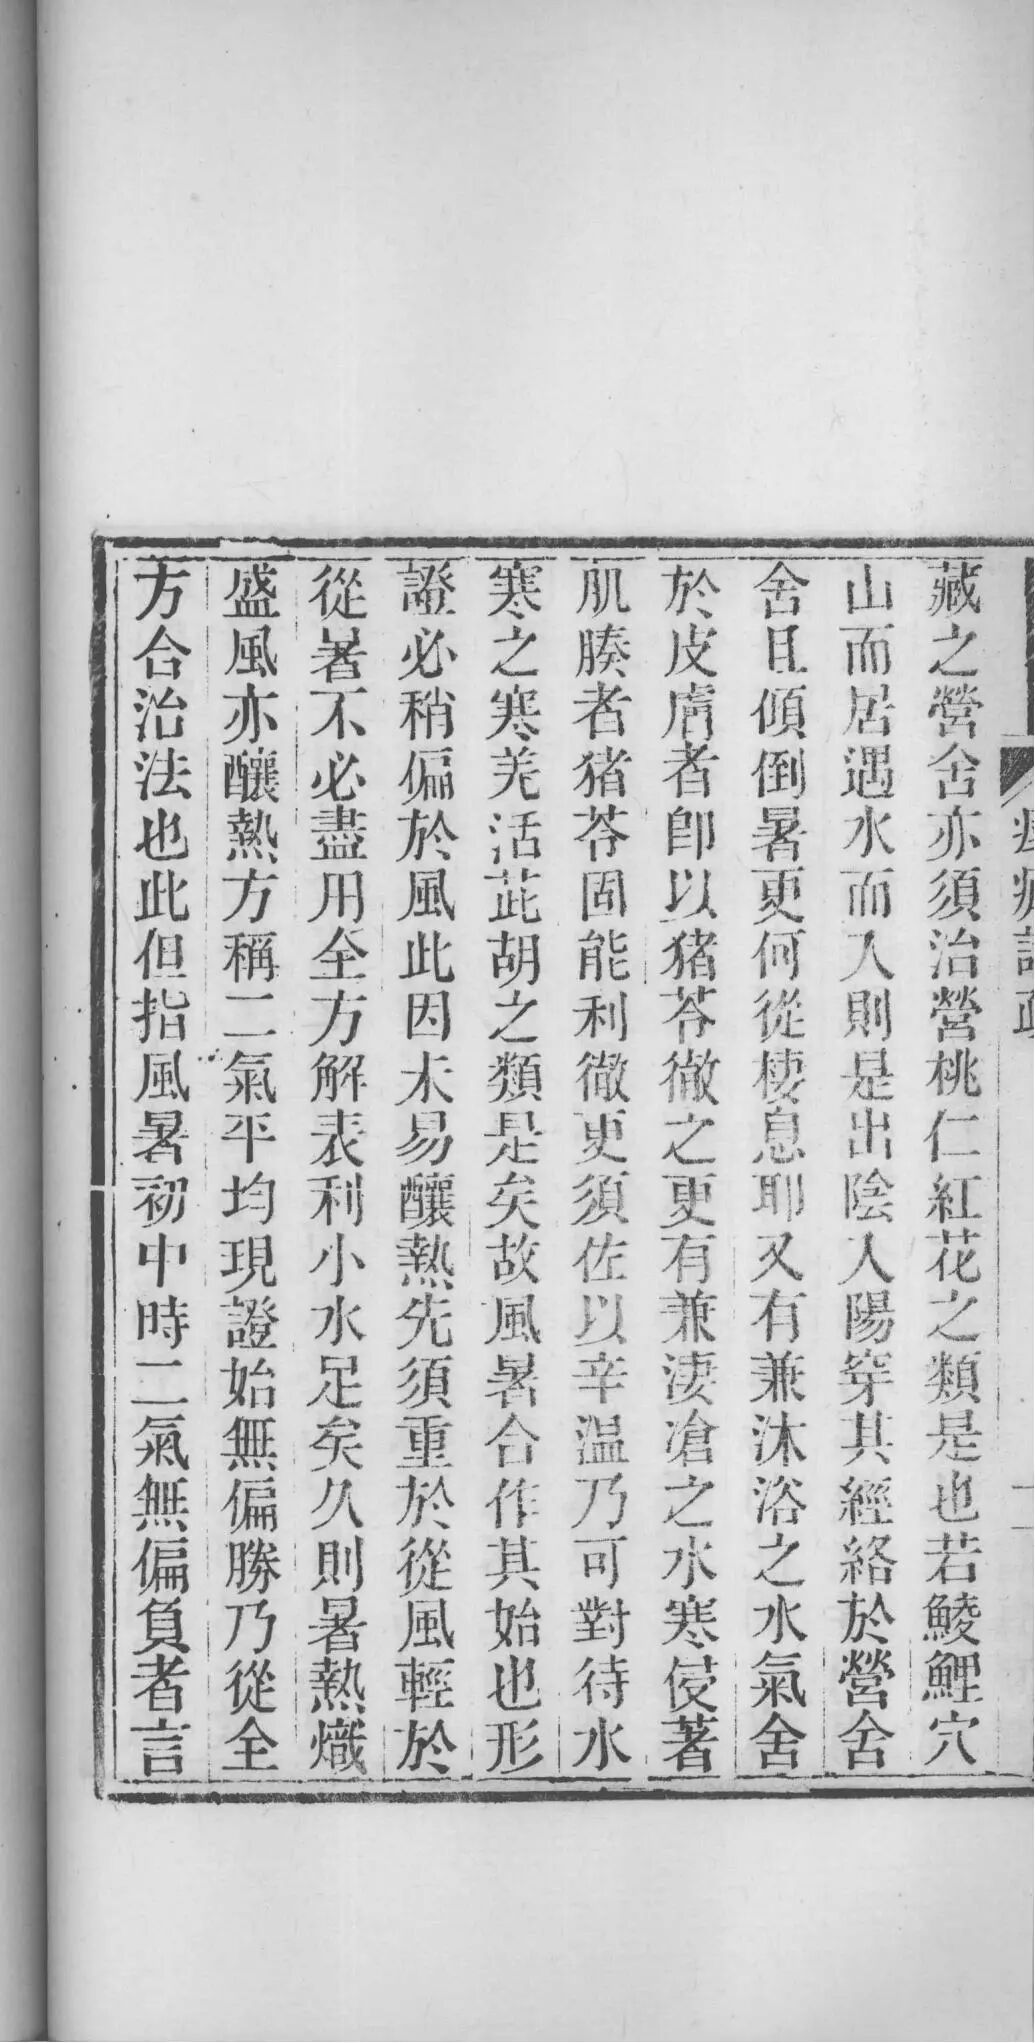 藏之營舍亦須治營桃仁紅花之類是也若鯪鯉穴
山而居遇水而入則是出陰入陽穿其經絡於營舍
舍且傾倒暑更何從棲息耶又有兼沐浴之水氣舍
於皮膚者卽以猪苓徹之更有兼淒凔之水寒侵著
肌腠者猪苓固能利徹更須佐以辛温乃可對待水
寒之寒羌活茈胡之類是矣故風暑合作其始也形
證必稍偏於風此因未易釀熱先須重於從風輕於
從暑不必盡用全方解表利小水足矣久則暑熱熾
盛風亦釀熱方稱二氣平均現證始無偏勝乃從全
方合治法也此但指風暑初中時二氣無偏負者言